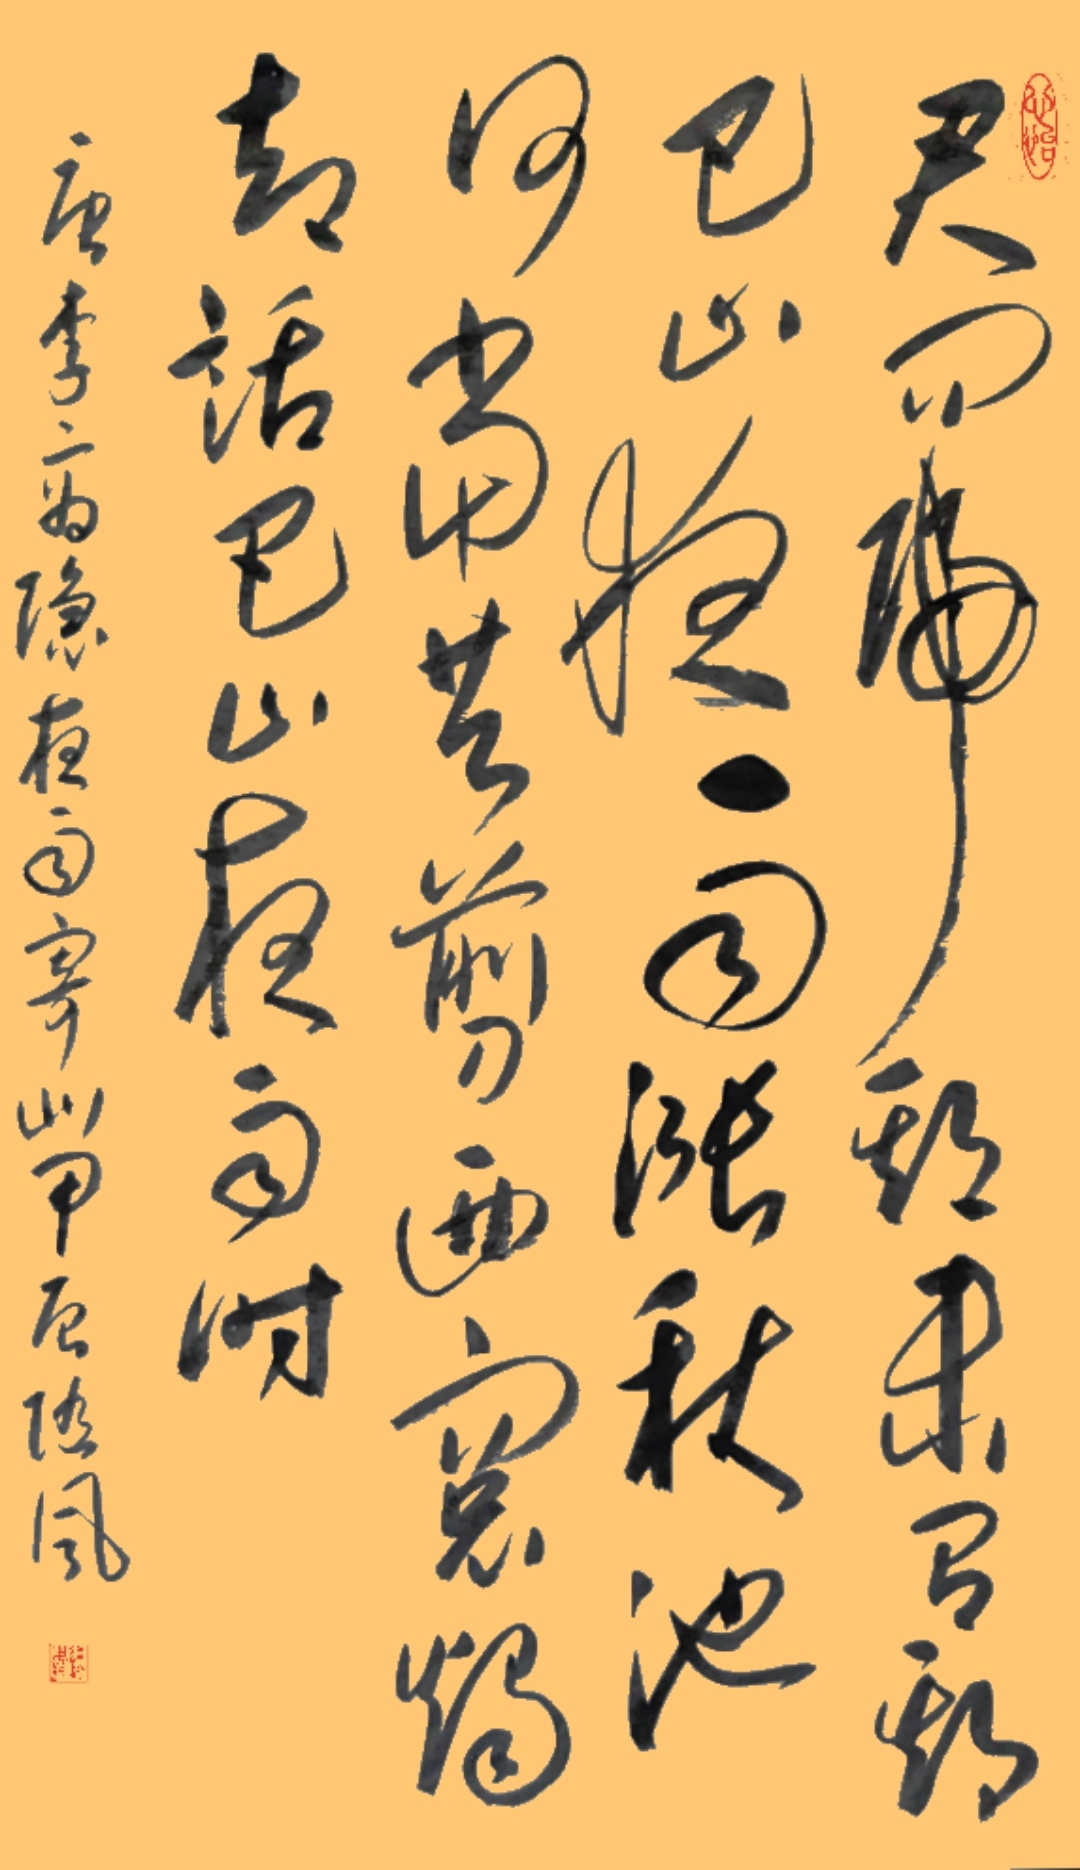 君问归期未有期
巴山夜雨涨秋池
何当共剪西窗烛
却话巴山夜雨时
唐李商隐夜雨寄北甲辰风